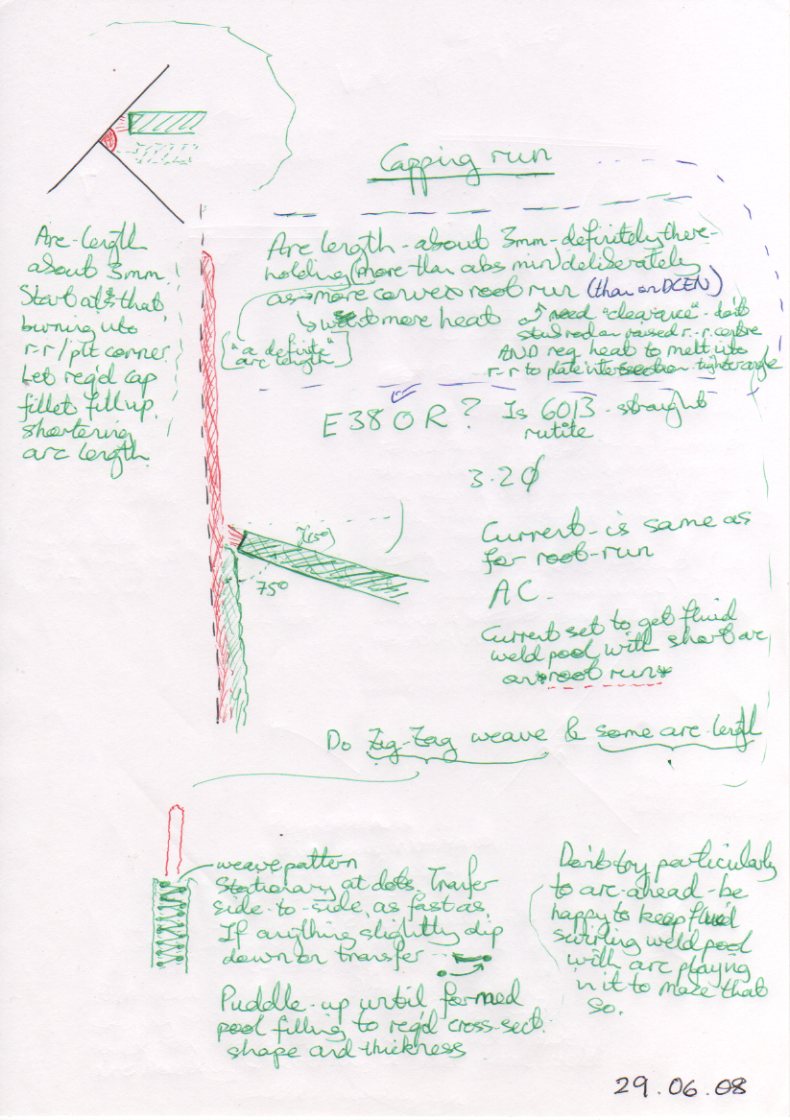 Capping run
Arc-length
about 3mm.
Start at that
burning into
r-r/plt corner.
Let req'd cap
fillet fill up,
shortening
arc length.
Arc length - about 3mm - definitely there -
holding (more than abs min) deliberately
as → more convex root run (than on DCEN)
↳ more heat
need "clearance" - don't
stub rod on raised r-r centre
AND req. heat to melt into
r-r to plate intersection tighter angle
"a definite"
arc length
E38 0 R? Is 6013 - straight
rutile
3.2∅
75°
Current - is same as
for root-run
AC.
Current set to get fluid
weld pool with short arc
on *root run*
Do Zig-Zag weave & some arc-length
weave pattern
Stationary at dots. Transfer
side-to-side as fast as.
If anything slightly dip
down on transfer
Puddle-up until formed
pool filling to req'd cross-sect.
shape and thickness
Don't try particularly
to arc-ahead - be
happy to keep fluid
swirling weld pool
with arc playing
in it to make that
so.
29.06.08